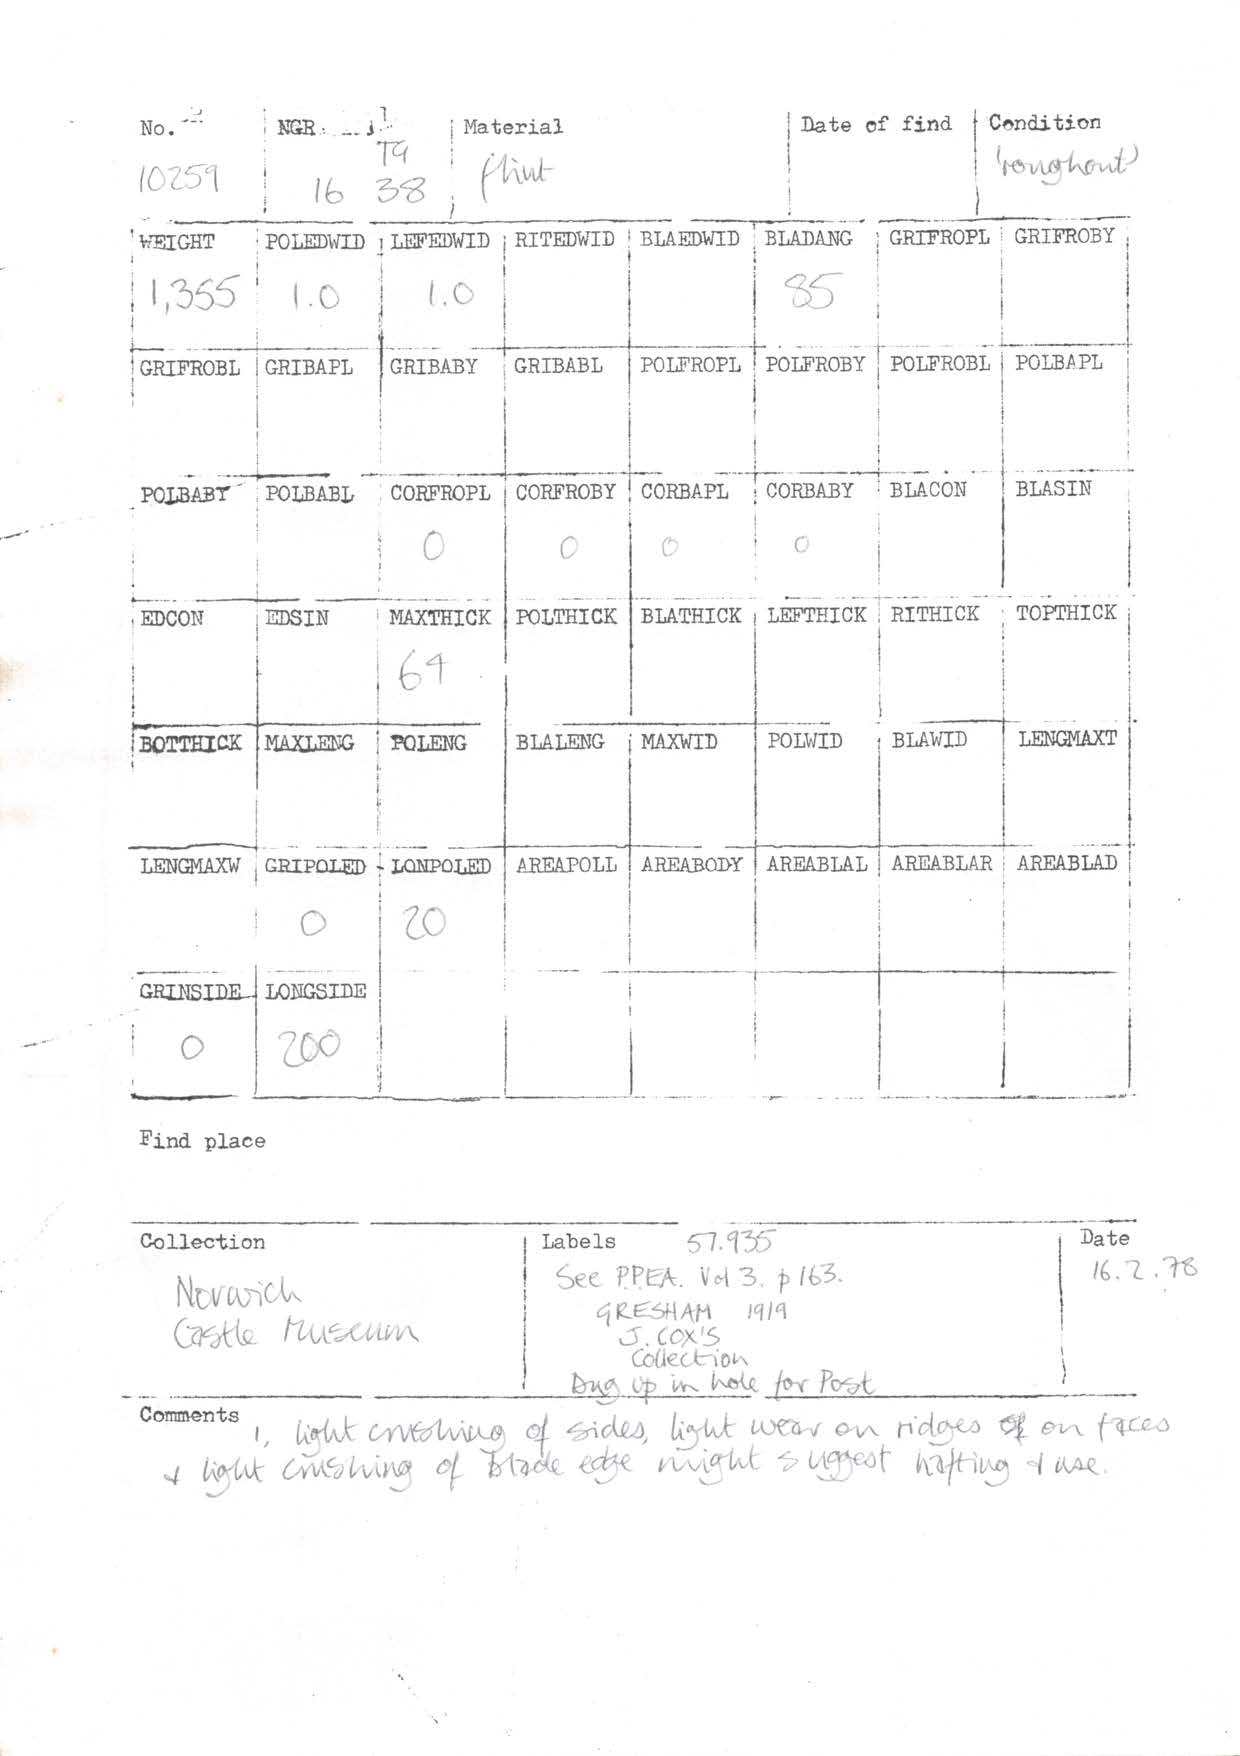 No. NGR Material Date of find Condition
TG
10259 16 38 flint 'roughout'
WEIGHT POLEDWID LEFEDWID RITEDWID BLAEDWID BLADANG GRIFROPL GRIFROBY
1,355 1.0 1.0 85
GRIFROBL GRIBAPL GRIBABY GRIBABL POLFROPL POLFROBY POLFROBL POLBAPL
POLBABY POLBABL CORFROPL CORFROBY CORBAPL CORBABY BLACON BLASIN
0 0 0 0
EDCON EDSIN MAXTHICK POLTHICK BLATHICK LEFTHICK RITHICK TOPTHICK
64
BOTTHICK MAXLENG POLENG BLALENG MAXWID POLWID BLAWID LENGMAXT
LENGMAXW GRIPOLED LONPOLED AREAPOLL AREABODY AREABLAL AREABLAR AREABLAD
0 20
GRINSIDE LONGSIDE
0 200
Find place
Collection Labels 57.935 Date
See P.P.E.A. Vol 3. p163. 16.2.78
Norwich GRESHAM 1919
Castle Museum J. COX'S
Collection
Dug up in hole for Post
Comments 1, light crushing of sides, light wear on ridges on faces
& light crushing of blade edge might suggest hafting & use.